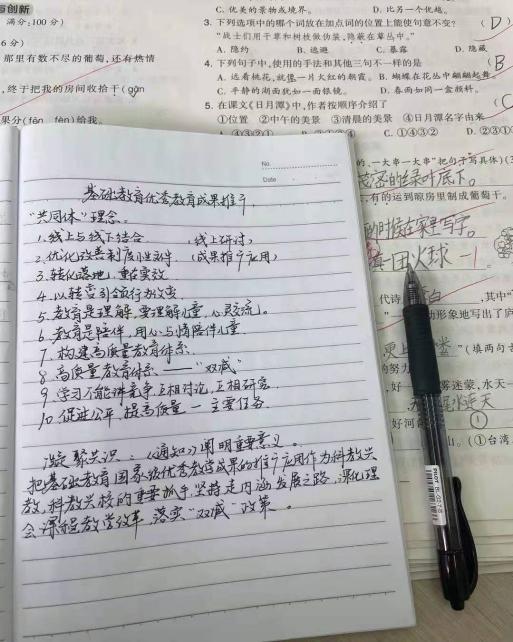 与创新
满分:100 分)
6分)
那里有数不尽的葡萄,还有热情
,终于把我的房间收拾干(gān
果分(fēn fèn)给我。
C. 优美的景物或境界。 D. 比另一个优越。
3. 下列选项中的哪个词放在加点词的位置上能使句意不变? (D)
"战士们用干草和树枝做伪装,隐蔽在草丛中。"
A. 隐约 B. 逃避 C. 暴露 D. 隐藏
4. 下列句子中,使用的手法和其他三句不一样的是 (B
A. 远看桃花,就像一片火红的朝霞。 B. 蝴蝶在花丛中翩翩起舞。
C. 平静的湖面犹如一面银镜。 D. 春雨如同一盒颜料。
5. 在课文《日月潭》中,作者按顺序介绍了 (C
①位置 ②中午的美景 ③清晨的美景 ④日月潭名字由来
C. ①④③② D. ②③①
No.
Date
基础教育优秀教育成果推广
"共同体"理念。
1.线上与线下结合 (线上研讨)
2.优化改善制度 (成果推广应用)
3.转化落地,重在实效
4.以转变引领行为改变
5.教育是理解,要理解儿童,心灵交流。
6.教育是陪伴,用心与情陪伴儿童
7.构建高质量教育体系
8.高质量教育体系——"双减"
9.学习不能讲竞争,互相讨论,互相研究
10.促进公平,提高质量—主要任务
凝聚共识:《通知》阐明重要意义。
把基础教育国家级优秀教学成果的推广应用作为科教兴
教,科教兴校的重要抓手,坚持走内涵发展之路,深化理
会课程教学改革,落实"双减"政策。
的,一大串一大串"把句子写具体)(3
的绿叶底下。
,有的运到晾房里制成葡萄干。
的时候在家里写字。
一团火球
代诗 ,其中"
动形象地写出了庐
"(填两句古
雾迷蒙,水天一
①
山。(①台湾